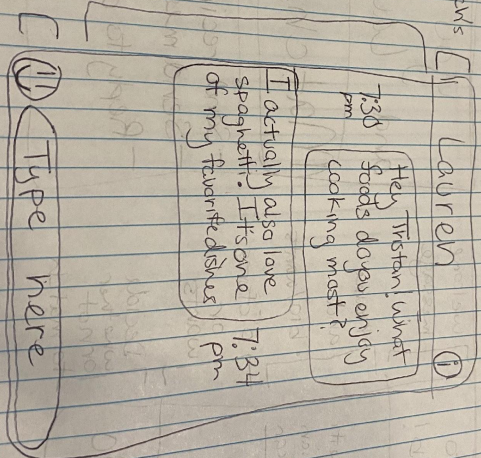 Lauren
i
7:30
pm
Hey Tristan! What
foods do you enjoy
cooking most?
I actually also love
spaghetti. Its one
of my favorite dishes
7:34
pm
Type here